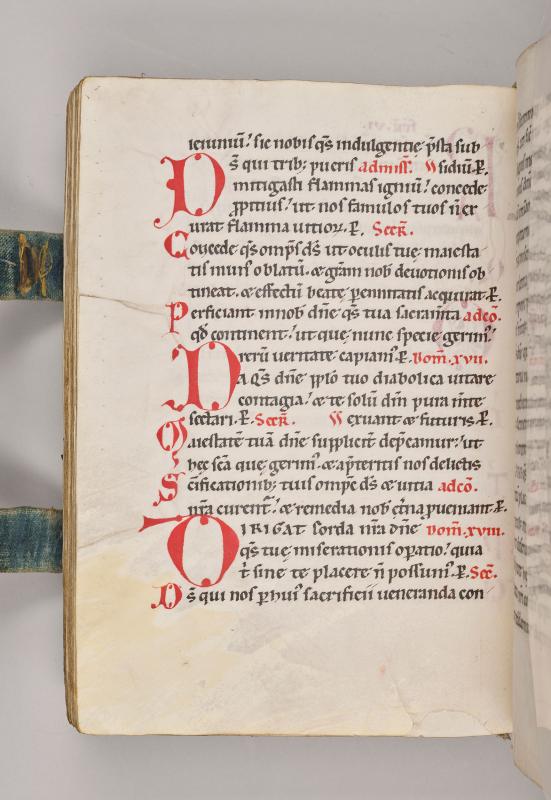 ieiuniu᷑. sic nobis q̄s indulgentię p̄sta sub
D s̄ qui trib; pueris admiss. sidiū. P̲.
mitigasti flammas igniū. concede
ꝓpitius. ut nos famulos tuos n̄ ex
urat flamma uitioꝝ. P̲. Secr̄.
Concede q̄s omp̄s d̄s ut oculis tuę maiesta
tis mun᷒ oblatū. & grām nob̄ deuotionis ob
tineat. & effectū beatę pennitatis acquirat. P̲.
Perficiant in nob̄ dn̄e q̄s tua sacram̄ta ad cō.
qd̄ continent. ut que nunc specie gerim᷒.
rerū ueritate capiam᷒. P̲. Dom̄. xvii.
DA QS dn̄e pplo tuo diabolica uitare
contagia. & te solū dm̄ pura m̄te
sectari. P̲. Secr̄. exuant & futuris. P̲.
Maiestatē tuā dn̄e suppliciter dep̄camur. ut
hec sc̄a que gerim᷒. & a p̄teritis nos delictis
Sc̄ificationib; tuis omp̄e d̄s & uitia ad cō.
nr̄a curent᷒. & remedia nob̄ et̄na ꝓueniant. P̲.
DIRIGAT corda nr̄a dn̄e Dom̄. xviii.
q̄s tuę miserationis opatio. quia
t̄ sine te placere n̄ possum᷒. P̲. Sec̄.
D s̄ qui nos p hui᷒ sacrificii ueneranda com